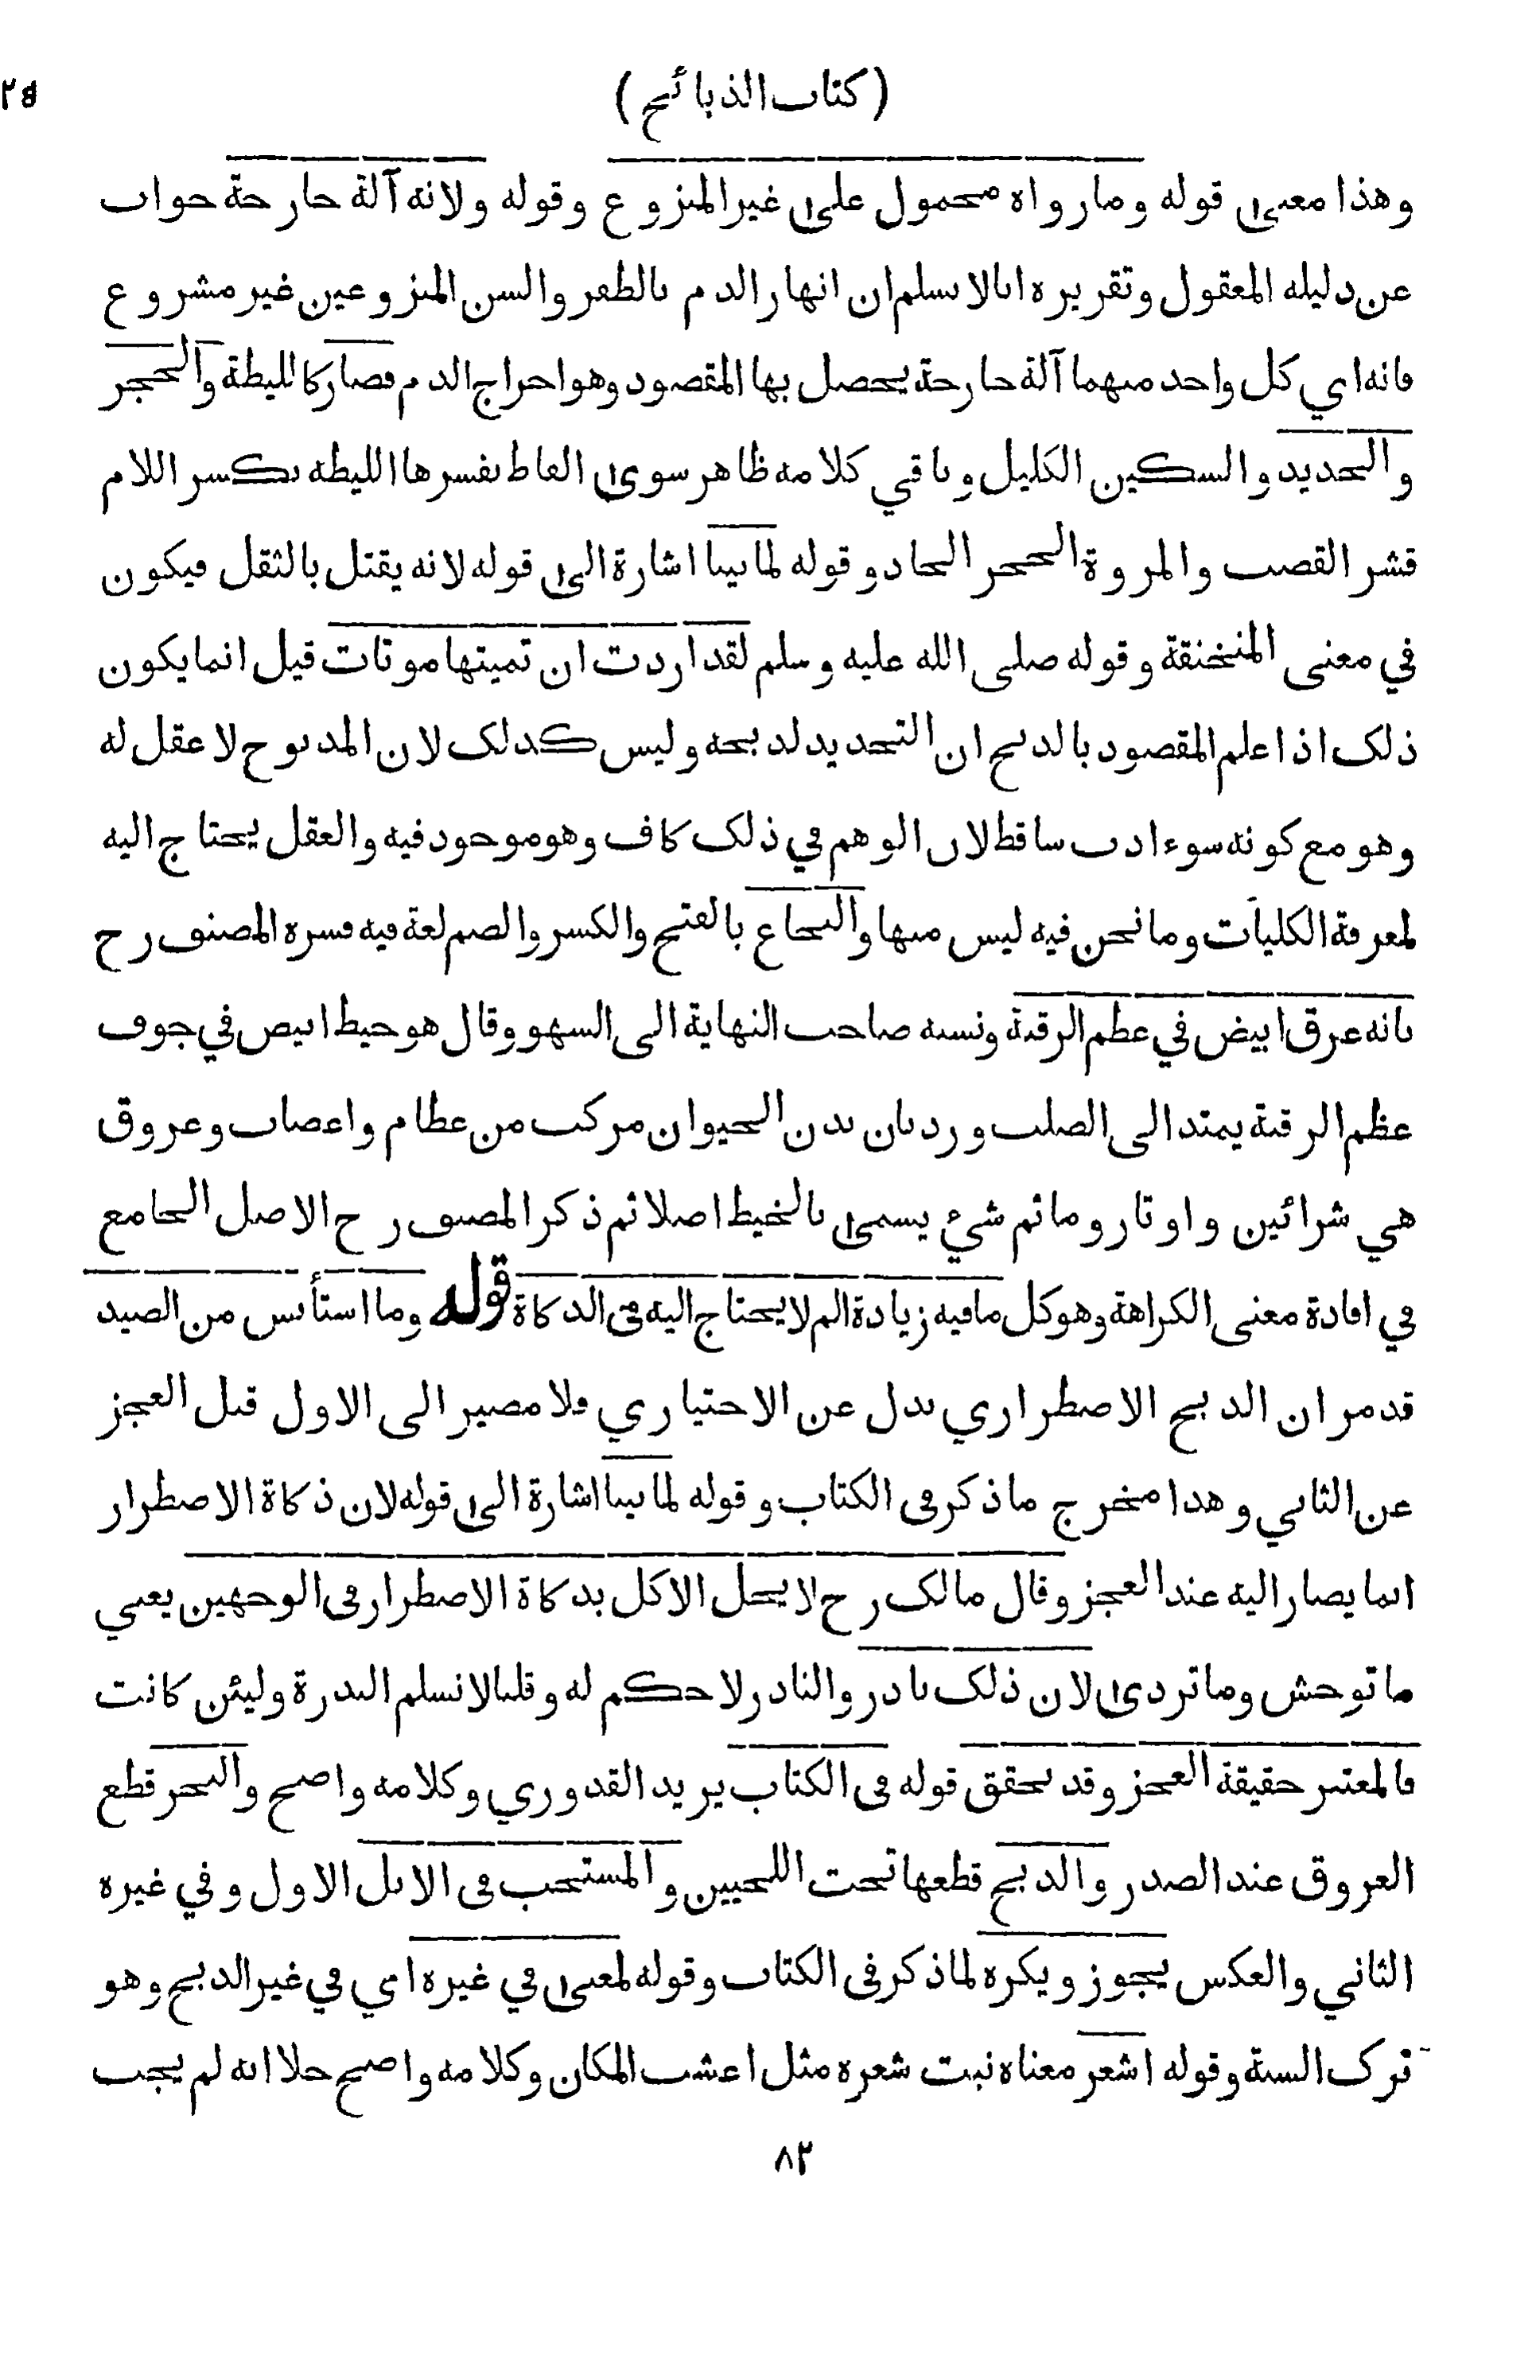 ( كتاب الذبائح )
وهذا معنى قوله ومارواه محمول على غير المنزوع وقوله ولانه آلة جارحة جواب
عن دليله المعقول وتقريره انا لا نسلم ان انهار الدم بالظفر والسن المنزوعين غير مشروع
فانه اي كل واحد منهما آلة جارحة يحصل بها المقصود وهو اخراج الدم فصار كالليطة والحجر
والحديد والسكين الكليل وباقي كلامه ظاهر سوى الفاظ نفسرها الليطه بكسر اللام
قشر القصب والمروة الحجر الحاد وقوله لما بينا اشارة الى قوله لانه يقتل بالثقل فيكون
في معنى المنخنقة وقوله صلى الله عليه وسلم لقد اردت ان تميتها موتات قيل انما يكون
ذلك اذا علم المقصود بالذبح ان التحديد لذبحه وليس كذلك لان المذبوح لا عقل له
وهو مع كونه سوء ادب ساقط لان الوهم في ذلك كاف وهو موجود فيه والعقل يحتاج اليه
لمعرفة الكليات وما نحن فيه ليس منها والنخاع بالفتح والكسر والضم لغة فيه فسره المصنف رح
بانه عرق ابيض في عظم الرقبة ونسبه صاحب النهاية الى السهو وقال هو خيط ابيض في جوف
عظم الرقبة يمتد الى الصلب ورد بان بدن الحيوان مركب من عظام واعصاب وعروق
هي شرائين واوتار وما ثم شيء يسمى بالخيط اصلا ثم ذكر المصنف رح الاصل الجامع
في افادة معنى الكراهة وهو كل ما فيه زيادة الم لا يحتاج اليه في الذكاة قوله وما استأنس من الصيد
قد مر ان الذبح الاضطراري بدل عن الاختياري فلا مصير الى الاول قبل العجز
عن الثاني وهذا مخرج ما ذكر في الكتاب وقوله لما بينا اشارة الى قوله لان ذكاة الاضطرار
انما يصار اليه عند العجز وقال مالك رح لا يحل الاكل بذكاة الاضطرار في الوجهين يعني
ما توحش وما تردى لان ذلك نادر والنادر لا حكم له وقلنا لا نسلم الندرة وليئن كانت
فالمعتبر حقيقة العجز وقد تحقق قوله في الكتاب يريد القدوري وكلامه واضح والنحر قطع
العروق عند الصدر والذبح قطعها تحت اللحيين والمستحب في الابل الاول وفي غيره
الثاني والعكس يجوز ويكره لما ذكر في الكتاب وقوله لمعنى في غيره اي في غير الذبح وهو
ترك السنة وقوله اشعر معناه نبت شعره مثل اعشب المكان وكلامه واضح خلا انه لم يجب
٨٣